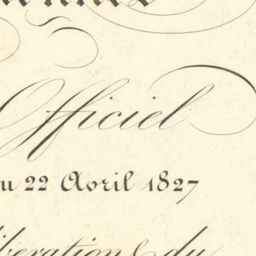 Officiel
u 22 Avril 1827
bération & du